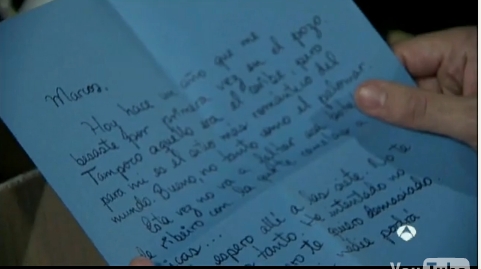 Marcos,
Hoy hace un año que me
besaste por primera vez en el pozo
Tampoco aquello era el caribe pero
para mi es el sitio mas romantico del
mundo. Bueno, no tanto como el palomar.
Esta vez no va a faltar
de ribeiro con la
espero allí a las siete. No te
tanto. He intentado no
te quiero demasiado.
podía
YouTube